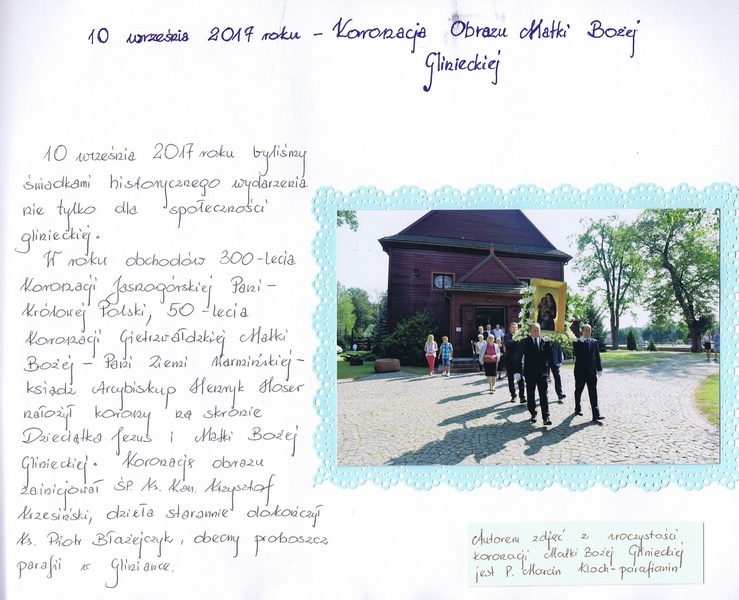 10 września 2017 roku - Koronacja Obrazu Matki Bożej
Glinieckiej
10 września 2017 roku byliśmy
świadkami historycznego wydarzenia
nie tylko dla społeczności
glinieckiej.
W roku obchodów 300-lecia
Koronacji Jasnogórskiej Pani -
Królowej Polski, 50 - lecia
Koronacji Gietrzwałdzkiej Matki
Bożej - Pani Ziemi Warmińskiej -
ksiądz Arcybiskup Henryk Hoser
nałożył korony na skronie
Dzieciątka Jezus i Matki Bożej
Glinieckiej. Koronację obrazu
zainicjował ŚP. Ks. Kan. Krzysztof
Krzesiński, dzieła starannie dokończył
Ks. Piotr Błażejczyk, obecny proboszcz
parafii w Gliniance.
Autorem zdjęć z uroczystości
koronacji Matki Bożej Glinieckiej
jest P. Marcin Kloch - parafianin